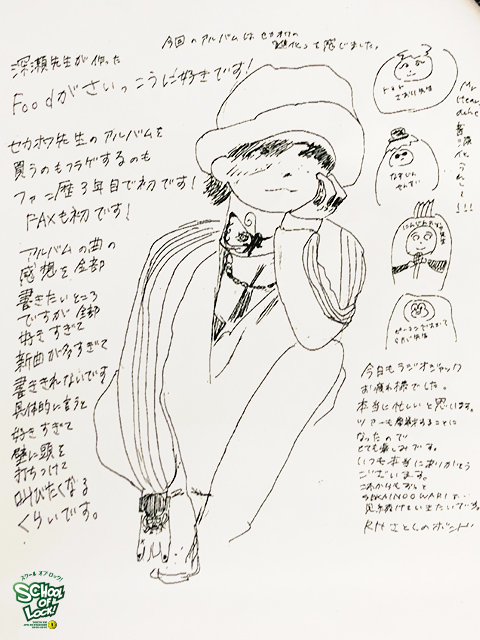 今回のアルバムはセカオワの
進化を感じました。
深瀬先生が作った
Foodがさいっこうに好きです!
セカオワ先生のアルバムを
買うのもフラゲするのも
ファン歴3年目で初です!
FAXも初です!
アルバムの曲の
感想を全部
書きたいところ
ですが全部
好きすぎて
新曲が多すぎて
書ききれないです
具体的に言うと
好きすぎて
壁に頭を
打ちつけて
叫びたくなる
くらいです。
トマト
さおり先生
なかじん
せんせい
にんじん
ピーマン
今日もラジオジャック
お疲れ様でした。
本当に忙しいと思います。
ツアーも
することに
なったので
とても楽しみです。
いつも本当にありがとう
ございます。
これからもずっと
SEKAI NO OWARI
RN さとくんのボンド
スクール オブ ロック!
SCHOOL
OF
LOCK!